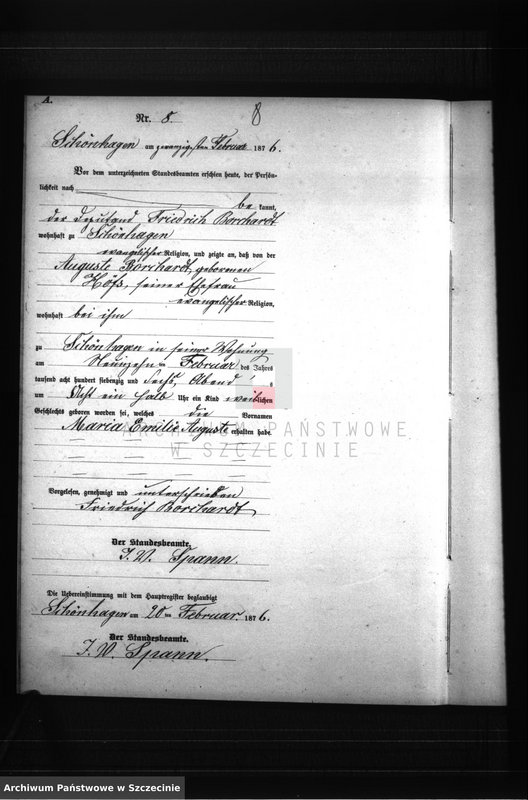 A.
Nr. 8. 8
Schönhagen am zwanzigsten Februar 1876.
Vor dem unterzeichneten Standesbeamten erschien heute, der Persön-
lichkeit nach
be kannt,
der Deputand Friedrich Borchardt
wohnhaft zu Schönhagen
evangelischer Religion, und zeigte an, daß von der
Auguste Borchardt, geborenen
seiner Ehefrau
evangelischer Religion,
wohnhaft bei ihm
zu Schönhagen in seiner Wohnung
am Neunzehn ten Februar des Jahres
tausend acht hundert siebenzig und sechs, Abends
um ein halb Uhr ein Kind weiblichen
Geschlechts geboren worden sei, welches die Vornamen
Maria Emilie Auguste erhalten habe.
Vorgelesen, genehmigt und unterschrieben
Friedrich Borchardt
Der Standesbeamte.
I. V. Spann.
Die Uebereinstimmung mit dem Hauptregister beglaubigt
Schönhagen am 20ten Februar 1876.
Der Standesbeamte.
I. V. Spann.
ARCHIWUM PAŃSTWOWE
W SZCZECINIE
Archiwum Państwowe w Szczecinie